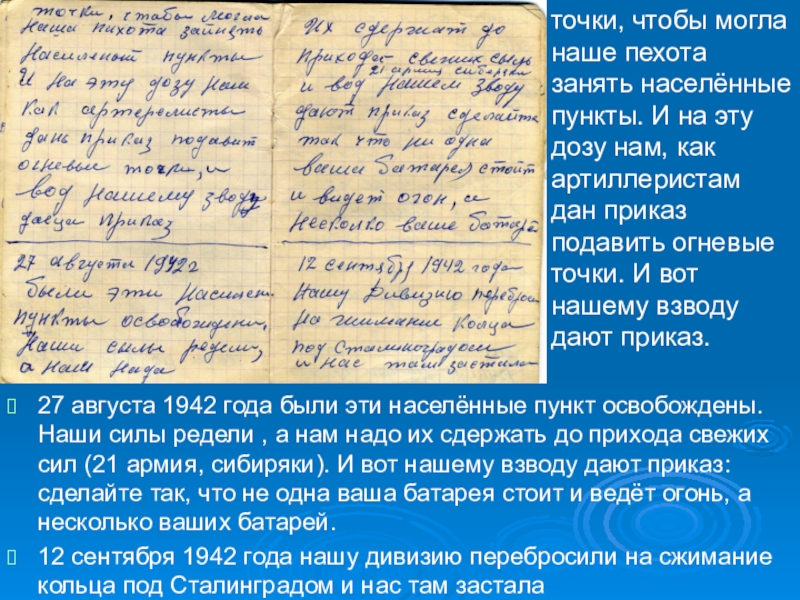 точки, чтобы могла
наша пихота занять
населеный пункты
И на эту дозу нам
как артерелисты
дань приказ подавит
огневые точки, и
вод нашему зводу
даеца приказ
27 августа 1942 г
были эти населен
пункты освобождени,
наши силы редели,
а нам нада
Их сдержат до
прихода свежих сыль
21 армиц сибиряки
и вод нашем зводу
дают приказ сделайте
так что ни одна
ваша батарея стоит
и видет огон, а
несколко ваше батарей
12 сентября 1942 года
нашу дивизию перебрас
на жимание колца
под Сталинградом
и нас там застила
точки, чтобы могла
наше пехота
занять населённые
пункты. И на эту
дозу нам, как
артиллеристам
дан приказ
подавить огневые
точки. И вот
нашему взводу
дают приказ.
27 августа 1942 года были эти населённые пункт освобождены.
Наши силы редели , а нам надо их сдержать до прихода свежих
сил (21 армия, сибиряки). И вот нашему взводу дают приказ:
сделайте так, что не одна ваша батарея стоит и ведёт огонь, а
несколько ваших батарей.
12 сентября 1942 года нашу дивизию перебросили на сжимание
кольца под Сталинградом и нас там застала